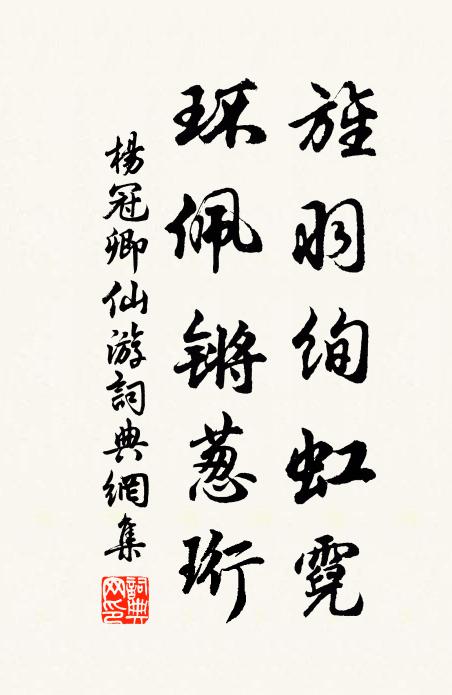 旌羽绚虹霓
环佩锵葱珩
楊冠卿仙游詞典網集
詞典网印